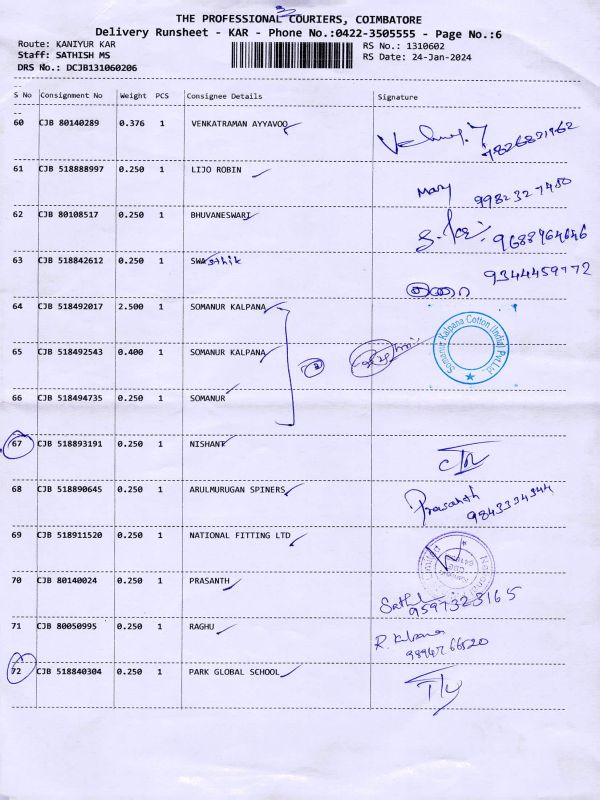 THE PROFESSIONAL COURIERS, COIMBATORE
Delivery Runsheet - KAR - Phone No.:0422-3505555 - Page No.:6
Route: KANIYUR KAR RS No.: 1310602
Staff: SATHISH MS RS Date: 24-Jan-2024
DRS No.: DCJB131060206
S No Consignment No Weight PCS Consignee Details Signature
60 CJB 80140289 0.376 1 VENKATRAMAN AYYAVOO
61 CJB 518888997 0.250 1 LIJO ROBIN
Mary 9982327480
62 CJB 80108517 0.250 1 BHUVANESWARI
9688464646
63 CJB 518842612 0.250 1 SWAsthik
9344459772
64 CJB 518492017 2.500 1 SOMANUR KALPANA
Somanur Kalpana Cotton (India) Pvt. Ltd.
65 CJB 518492543 0.400 1 SOMANUR KALPANA
66 CJB 518494735 0.250 1 SOMANUR
67 CJB 518893191 0.250 1 NISHANT
68 CJB 518890645 0.250 1 ARULMURUGAN SPINERS
Prasanth
9843334344
69 CJB 518911520 0.250 1 NATIONAL FITTING LTD
70 CJB 80140024 0.250 1 PRASANTH
9597323165
71 CJB 80050995 0.250 1 RAGHU
72 CJB 518840304 0.250 1 PARK GLOBAL SCHOOL